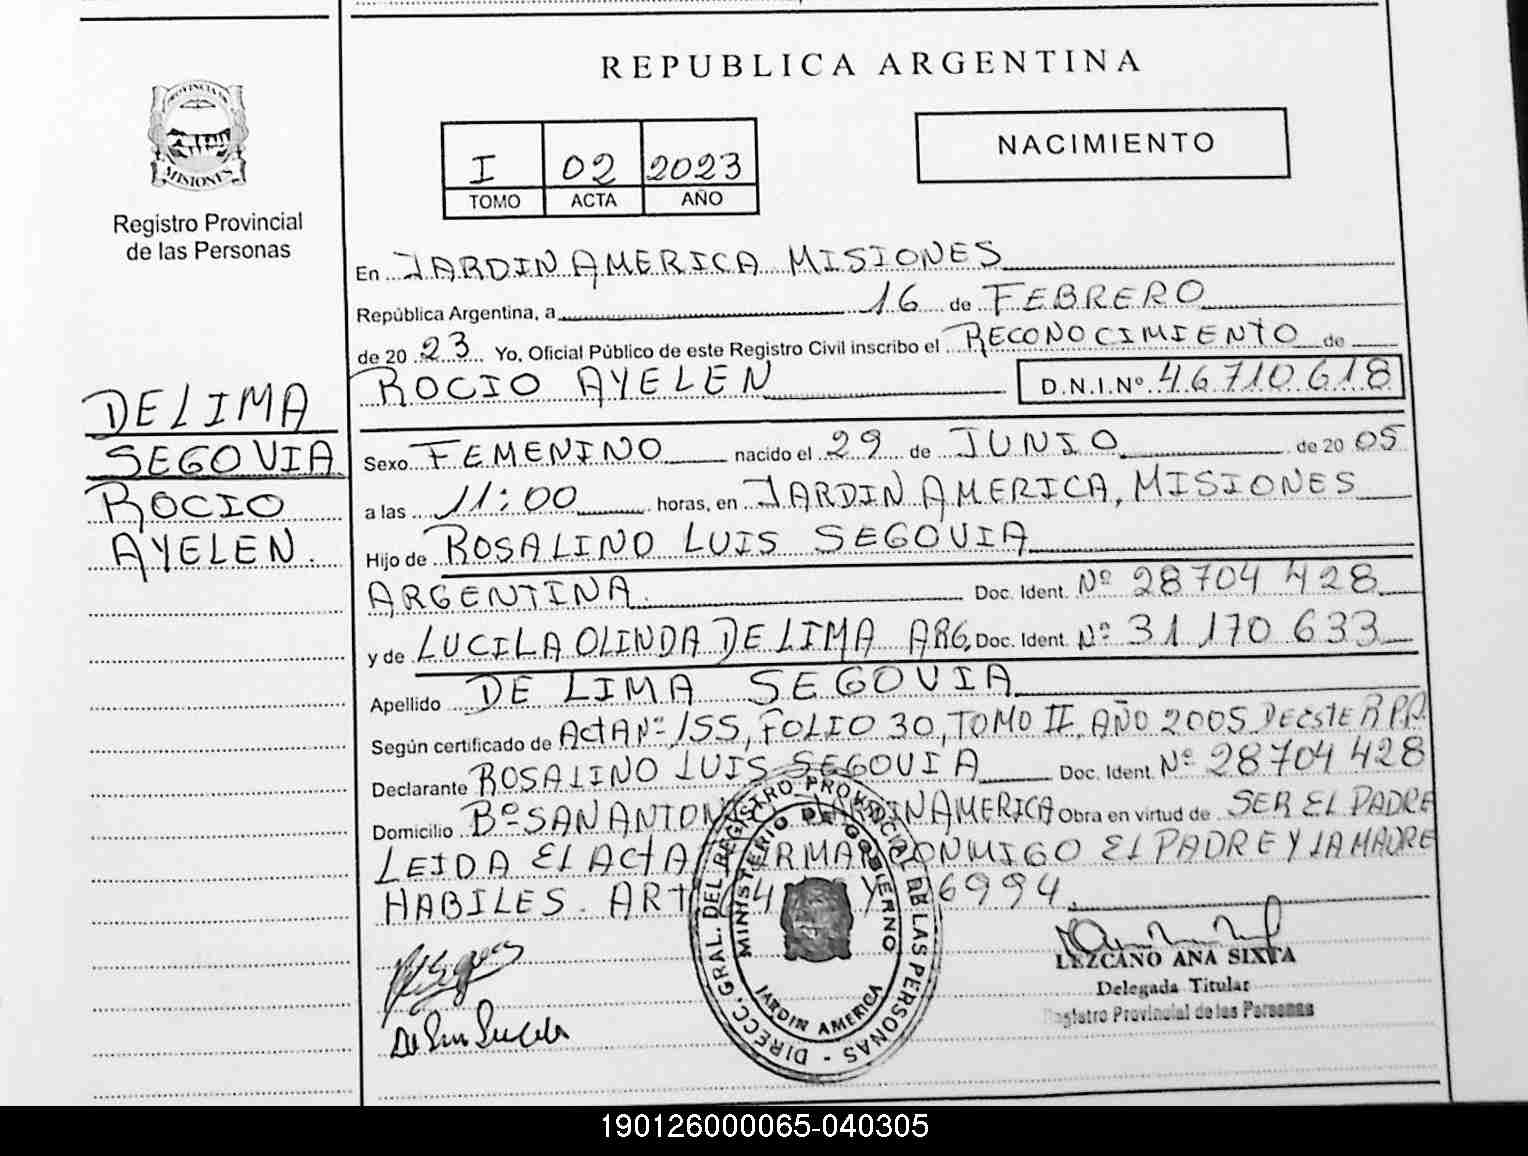 REPUBLICA ARGENTINA
PROVINCIA DE
MISIONES
Registro Provincial
de las Personas
I 02 2023
TOMO ACTA AÑO
NACIMIENTO
DE LIMA
SEGOVIA
ROCIO
AYELEN.
En JARDIN AMERICA MISIONES
República Argentina, a 16 de FEBRERO
de 20 23 Yo, Oficial Público de este Registro Civil inscribo el RECONOCIMIENTO de
ROCIO AYELEN D.N.I.Nº 46710618
Sexo FEMENINO nacido el 29 de JUNIO de 20 05
a las 11:00 horas, en JARDIN AMERICA, MISIONES
Hijo de ROSALINO LUIS SEGOVIA
ARGENTINA. Doc. Ident. Nº 28704428
y de LUCILA OLINDA DE LIMA ARG. Doc. Ident. Nº 31170633
Apellido DE LIMA SEGOVIA
Según certificado de ActA Nº 155, FOLIO 30, TOMO II, AÑO 2005 DE EStE R.P.P.
Declarante ROSALINO LUIS SEGOVIA Doc. Ident. Nº 28704428
Domicilio Bº SAN ANTONIO JARDIN AMERICA Obra en virtud de SER EL PADRE
LEIDA El ActA FIRMAN CONMIGO El PADRE Y LA MADRE
HABILES. ARt 26994
DIRECC. GRAL. DEL REGISTRO PROVINCIAL DE LAS PERSONAS -
MINISTERIO DE GOBIERNO
JARDIN AMERICA
LEZCANO ANA SIXTA
Delegada Titular
Registro Provincial de las Personas
190126000065-040305